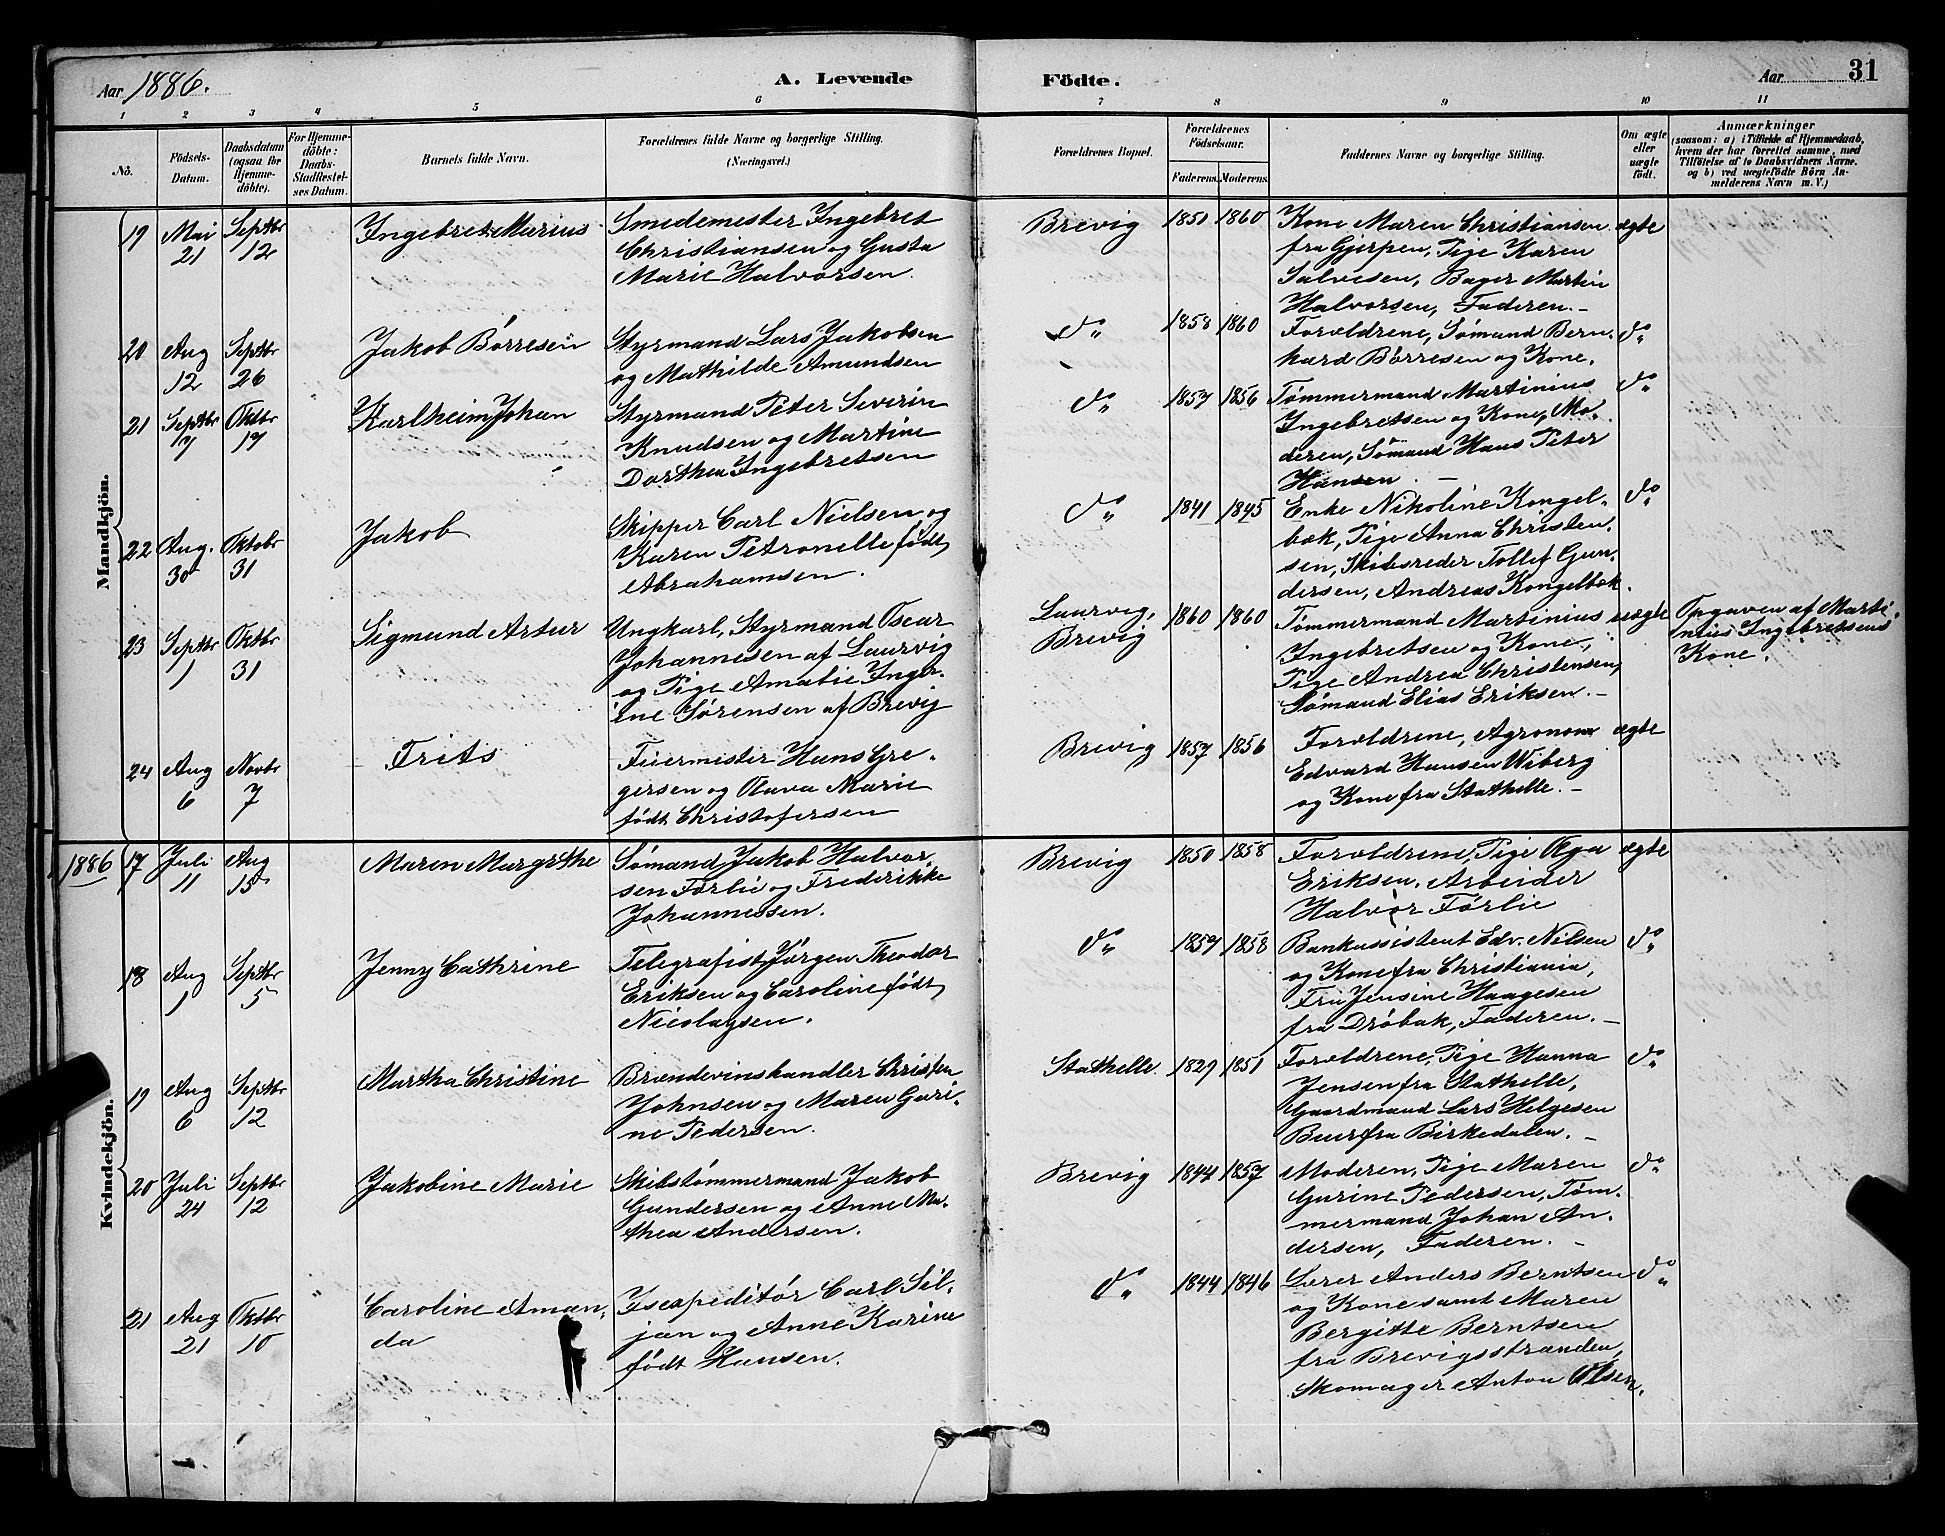 Aar 1886.
A. Levende Födte.
Aar 31
1 2 3 4 5 6 7 8 9 10 11
No.
Födsels-Datum.
Daabsdatum (ogsaa for Hjemmedöbte).
For Hjemmedöbte: Daabs-Stadfestelses Datum.
Barnets fulde Navn.
Forældrenes fulde Navne og borgerlige Stilling.
(Næringsvei.)
Forældrenes Bopæl.
Forældrenes Födselsaar.
Faderens. Moderens.
Faddernes Navne og borgerlige Stilling.
Om ægte eller uægte födt.
Anmærkninger
(saasom: a) i Tilfælde af Hjemmedaab,
hvem der har forrettet samme, med
Tilföielse af to Daabsvidners Navne.
og b) ved uægtefödte Börn An-
melderens Navn m. V.)
Mandkjön.
19 Mai 21 Septbr 12 Ingebret Marius
Smedemester Ingebret
Christiansen og Gusta
Marie Halvorsen.
Brevig 1850 1860
Kone Maren Christiansen
fra Gjerpen, Pige Karen
Salvesen, Bager Martin
Halvorsen, Faderen.-
ægte
20 Aug 12 Septbr 26 Jakob Børresen
Styrmand Lars Jakobsen
og Mathilde Amundsen
do 1858 1860
Forældrene, Sømand Bern-
hard Børresen og Kone.
do
21 Septbr 7 Oktbr 17 Karlheim Johan
Styrmand Peter Severin
Knudsen og Martine
Dorthea Ingebretsen
do 1857 1856
Tømmermand Martinius
Ingebretsen og Kone, Mo-
deren, Sømand Hans Peter
Hansen. -
do
22 Aug. 30 Oktobr 31 Jakob
Skipper Carl Nielsen og
Karen Petronelle født
Abrahamsen.
do 1841 1845
Enke Nikoline Kongel-
bæk, Pige Anna Christen-
sen, Skibsreder Tollef Gun-
dersen, Andreas Kongelbæk.
do
23 Septbr 1 Oktbr 31 Sigmund Artur
Ungkarl, Styrmand Oscar
Johannesen af Laurvig
og Pige Amalie Inger-
ine Sørensen af Brevig
Laurvig,
Brevig
1860 1860
Tømmermand Martinius
Ingebretsen og Kone,
Pige Andrea Christensen,
Sømand Elias Eriksen.-
uægte
Opgaven af Marti-
nius Ingebretsens
Kone.
24 Aug 6 Novbr 7 Frits
Feiermester Hans Gre-
gersen og Olava Marie
født Christofersen
Brevig 1857 1856
Forældrene, Agronom
Edvard Hansen Wiberg
og Kone fra Stathelle.-
ægte
Kvindekjön.
1886 17 Juli 11 Aug 15 Maren Margrethe
Sømand Jakob Halvor-
sen Førlie og Frederikke
Johannessen.
Brevig 1850 1858
Forældrene, Pige Olga
Eriksen, Arbeider
Halvor Førlie
ægte
18 Aug 1 Septbr 5 Jenny Cathrine
Telegrafist Jørgen Theodor
Eriksen og Caroline født
Nicolaysen.
do 1857 1858
Bankassistent Edv. Nilsen
og Kone fra Christiania,
Fru Jensine Haagesen
fra Drøbak, Faderen.-
do
19 Aug 6 Septbr 12 Martha Christine
Brændevinshandler Christen
Johnsen og Maren Guri-
ne Pedersen.
Stathelle. 1829 1851
Forældrene, Pige Hanna
Jensen fra Stathelle,
Gaardmand Lars Helgesen
Buer fra Birkedalen.-
do
20 Juli 24 Septbr 12 Jakobine Marie
Skibstømmermand Jakob
Gundersen og Anne Ma-
thea Andersen.
Brevig 1844 1857
Moderen, Pige Maren
Gurine Pedersen, Tøm-
mermand Johan An-
dersen, Faderen.-
do
21 Aug 21 Oktbr 10 Caroline Aman-
da
Isexpeditør Carl Sil-
jan og Anne Karine
født Hansen.
do 1844 1846
Lærer Anders Berntsen
og Kone samt Maren
Bergitte Berntsen
fra Brevigsstranden,
Skomager Anton Olsen.
do